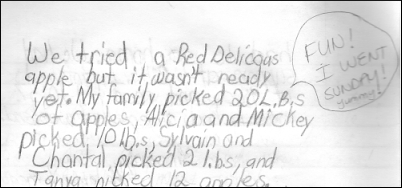 We tried a Red Delicous
apple but it wasn't ready
yet. My family picked 20 L.B.s
of apples, Alicia and Mickey
picked 10 lb.s, Sylvain and
Chantal, picked 2 l.bs, and
Tanya picked 12 apples.
FUN!
I WENT
SUNDAY!
yummy!